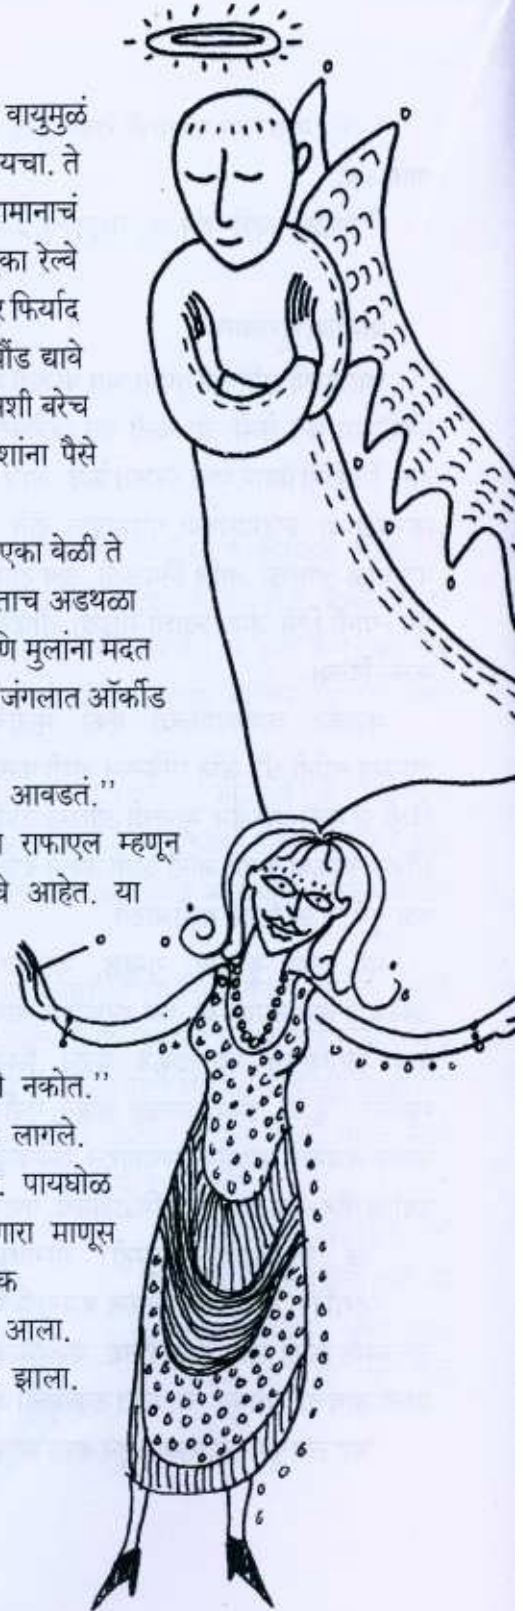 वायुमुळं
यचा. ते
ामानाचं
का रेल्वे
र फिर्याद
ौंड द्यावे
शी बरेच
शांना पैसे
एका बेळी ते
ताच अडथळा
णि मुलांना मदत
जंगलात ऑर्कीड
आवडतं.”
ा राफाएल म्हणून
चे आहेत. या
ी नकोत.”
लागले.
. पायघोळ
णारा माणूस
क
आला.
झाला.